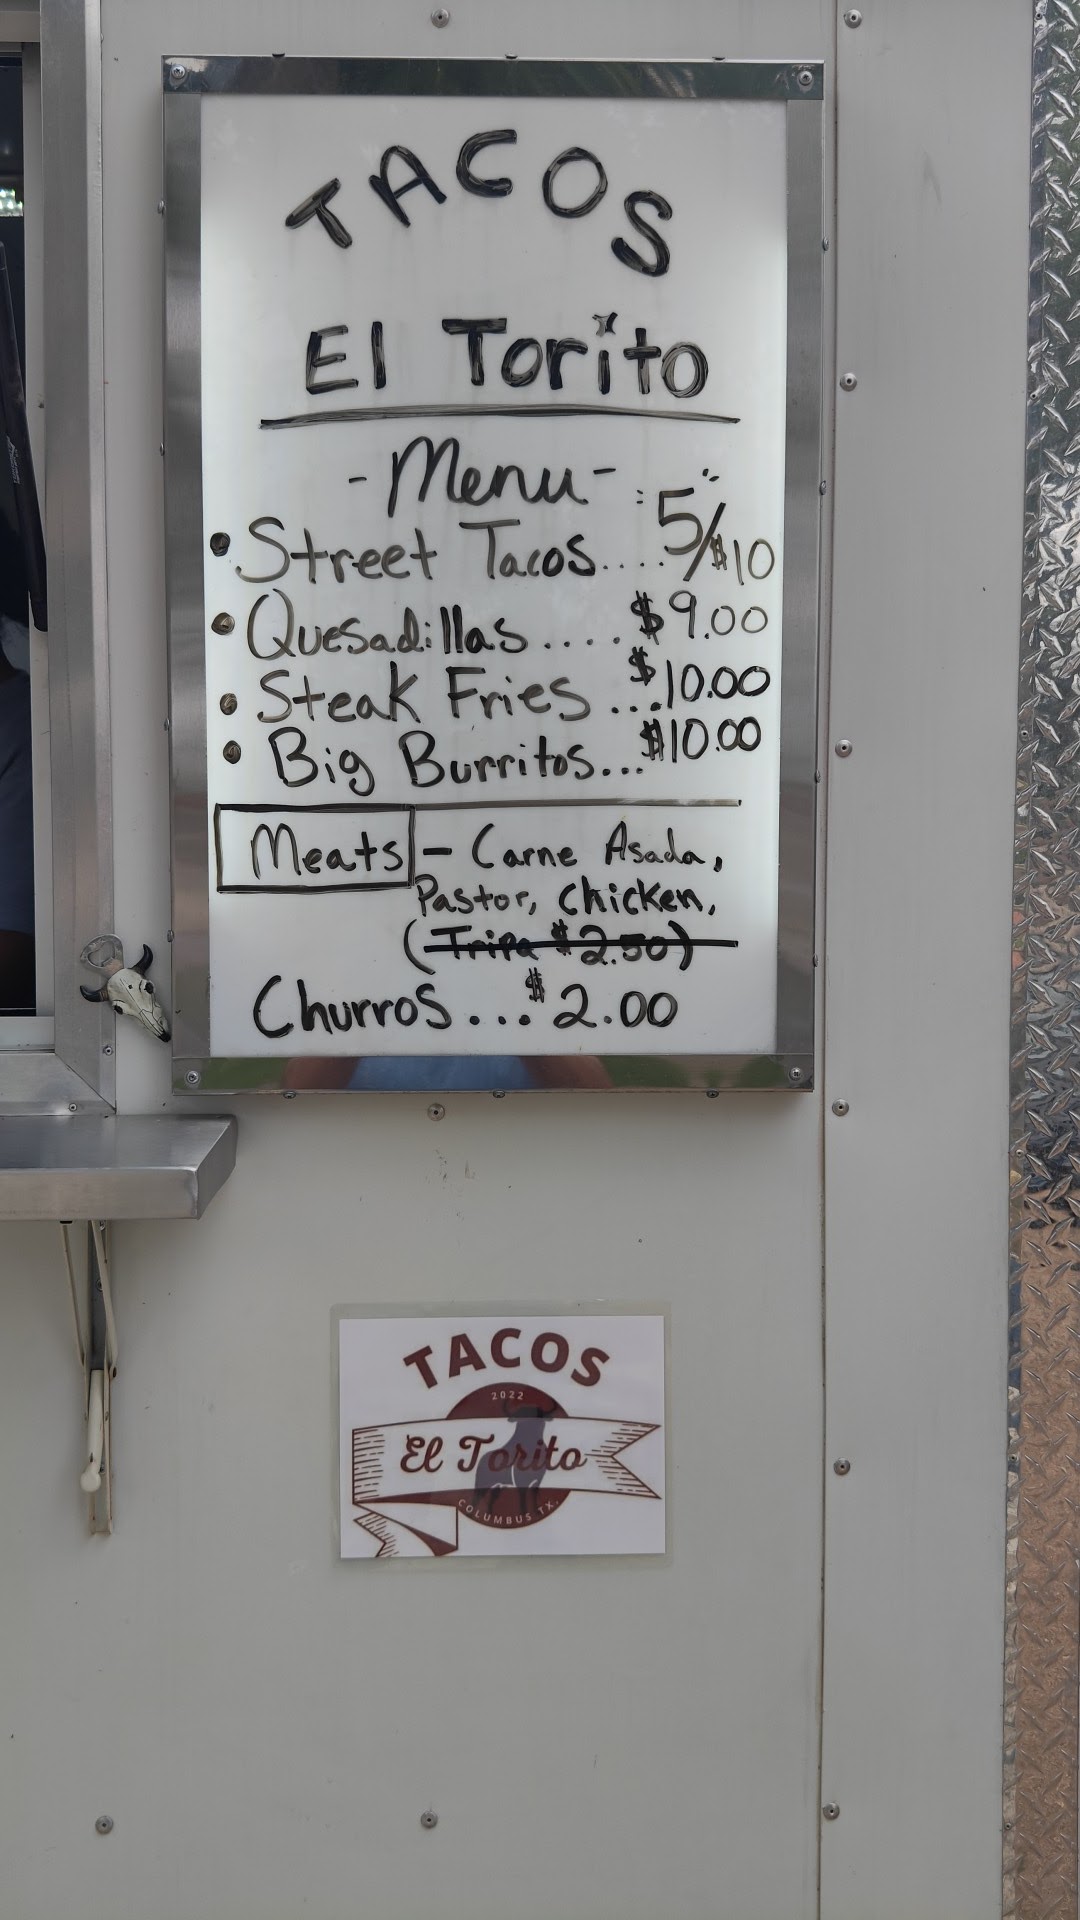 TACOS
El Torito
- Menu -
• Street Tacos.... 5/$10
• Quesadillas .... $9.00
• Steak Fries ...$10.00
• Big Burritos...$10.00
Meats - Carne Asada,
Pastor, Chicken,
(Tripa $2.50)
Churros...$2.00
TACOS
2022
El Torito
COLUMBUS TX.